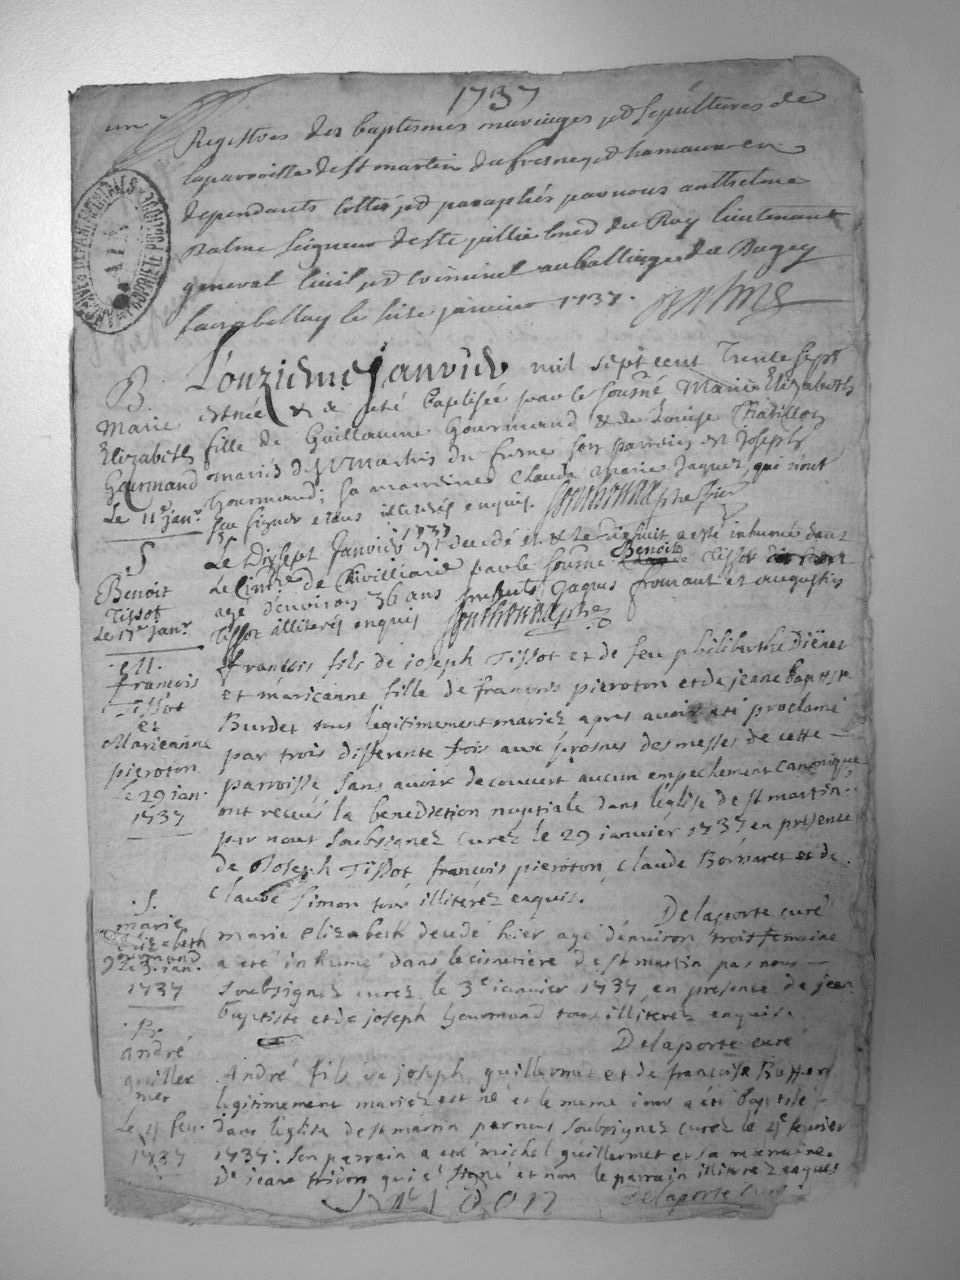 1737
Registres des baptesmes mariages et sepultures de
la parroisse de st martin du fresne et hameaux en
dependants cottés et paraphés par nous anthelme
Balme seigneur de ste jullie conser du Roy lieutenant
general civil et criminel au balliage de Bugey
a belley le seize janvier 1737.
ARCHIVES DEPARTEMENTALES
AIN
PROPRIETE PUBLIQUE
L'onzieme janvier mil sept cent Trente sept
B.
Marie
Elizabeth
Gourmand
Le 11e janr
est née et a eté baptisée par le sousné Marie Elizabeth
fille de Guillaume Gourmand et de Louise Chatillon
mariés de st Martin du frene son parrein est Joseph
Gourmand; sa marreine Claude Marie Jaquet, qui n'ont
sçu signer etans illiterés enquis
S
Benoit
Tissot
Le 17e janr
Le Dixsept Janvier 1737 est decedé et le a esté inhumé dans
Le Cimre de Chevilliard par le sousné Benoit Tissot
agé d'environ 36 ans presents Jaques fromant et augustin
Tissot illiterés enquis
M.
francois
Tissot
et
Marieanne
pieroton
Le 29 ian.
1737
francois fils de joseph Tissot et de feu philiberthe
et marieanne fille de francois pieroton et de jeane baptiste
Burdet tous legitimement mariez apres avoir eté proclamé
par trois differente fois aux prosnes des messes de cette
parroisse sans avoir decouvert aucun empechement canonique
ont receus la benediction nuptiale dans l'église de st martin
par nous soubsignez curez le 29 ianvier 1737 en présence
de Joseph Tissot, francois pieroton, Claude Bornarel et de
Claude Simon tous illiterez enquis.
Delaporte curé
S.
marie
Elizabeth
gourmand
le 3. ian.
1737
marie elizabeth decedé hier agé d'environ trois semaine
a eté inhumé dans le cimetière de st martin par nous
soubsignez curez le 3e ianvier 1737 en presence de jean
baptiste et de joseph Gourmand tous illiterez enquis.
Delaporte curé
B.
andré
guiller
met
Le 4 feu.
1737
André fils de joseph guillermet et de francoise
legitimement mariez est né et le meme iour a eté baptisé
dans l'église de st martin par nous soubsignez curez le 4e feuvrier
1737. Son parrain a eté michel guillermet et sa marraine
De jeane tridon qui a signé et non le parrain illiterez enquis
Delaporte curé